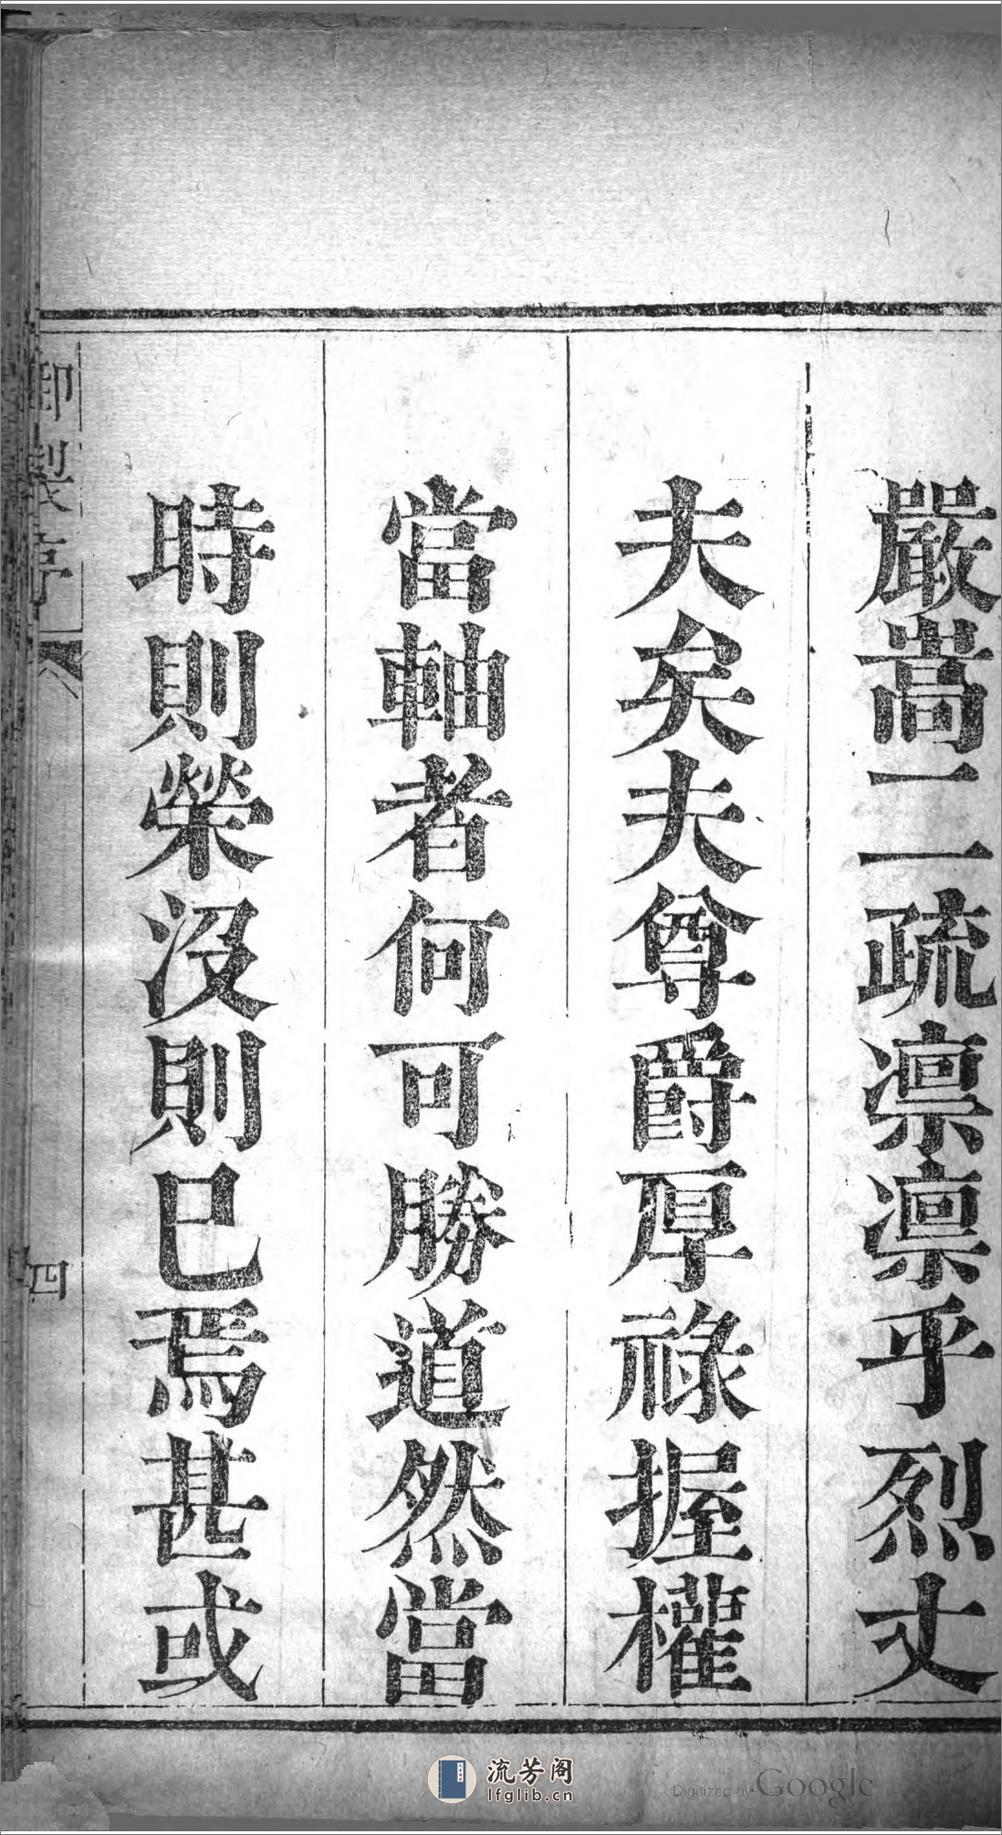 嚴嵩二疏凛凛乎烈丈
夫矣夫尊爵厚祿握權
當軸者何可勝道然當
時則榮沒則巳焉甚或
御製序
四
流芳阁
lfglib.cn
Digitized by Google